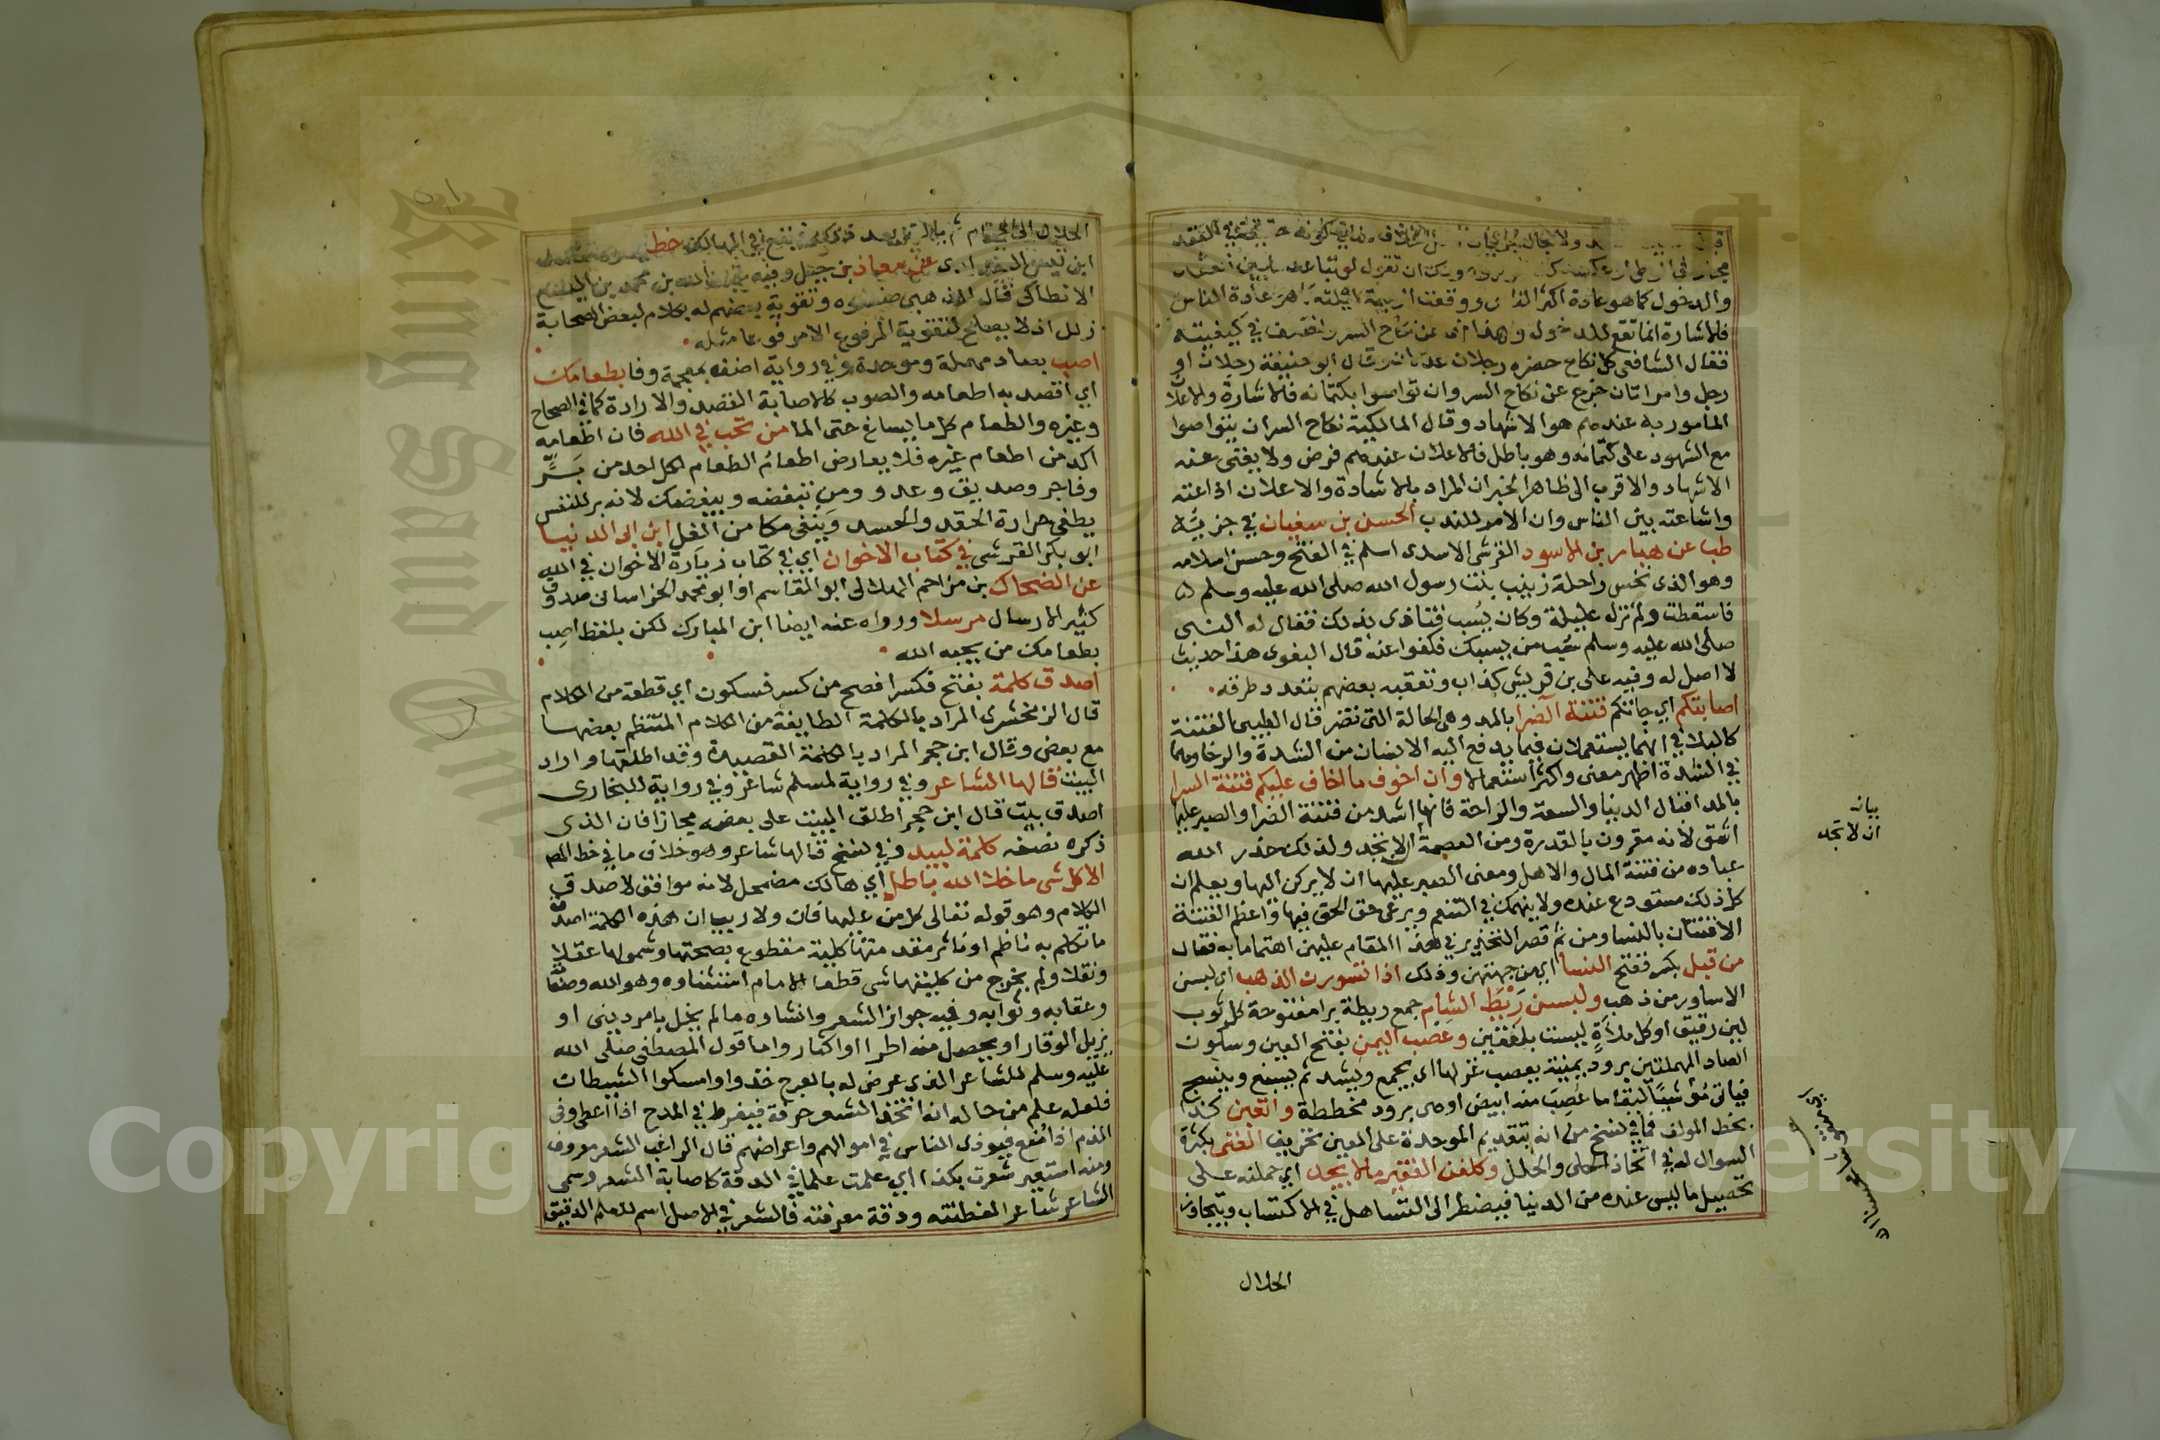 والدخول كما هو عادة اكثر الناس ووقعت الوليمة ليلته
فالاشارة انما تقع للدخول وهذا نهى عن نكاح السر واختلف في كيفيته
فقال الشافعى كل نكاح حضره رجلان عدلان وقال ابو حنيفة رجلان او
رجل وامراتان خرج عن نكاح السر وان تواصوا بكتمانه فالاشارة والاعلان
المامور به عندهم هو الاشهاد وقال المالكية نكاح السر ان يتواصوا
مع الشهود على كتمانه وهو باطل فالاعلان عندهم فرض ولا يغنى عنه
الاشهاد والاقرب الى ظاهر الخبر ان المراد بالاشادة والاعلان اذاعته
واشاعته بين الناس وان الامر للندب الحسن بن سفيان في جزئيه
طب عن هبار بن الاسود القرشى الاسدى اسلم في الفتح وحسن اسلامه
وهو الذى نخس راحلة زينب بنت رسول الله صلى الله عليه وسلم
فاسقطت ولم تزل عليلة وكان يسب فتاذى بذلك فقال له النبى
صلى الله عليه وسلم سب من يسبك فكفوا عنه قال البغوى هذا حديث
لا اصل له وفيه على بن قريش كذاب وتعقبه بعضهم بتعدد طرقه
اصابتكم اي جاتكم فتنة الضرا بالمد وهى الحالة التى تضر قال الطيبى الفتنة
كالبلا في انهما يستعملان فيما يدفع اليه الانسان من الشدة والرخا وهما
في الشدة اظهر معنى واكثر استعمالا وان اخوف ما اخاف عليكم فتنة السرا
بالمد اقبال الدنيا والسعة والراحة فانها اشد من فتنة الضرا والصبر عليها
اشق لانه مقرون بالقدرة ومن العصمة الا تجد ولذلك حذر الله
عباده من فتنة المال والاهل ومعنى الصبر عليها ان لا يركن اليها ويعلم ان
كل ذلك مستودع عنده ولا ينهمك في التنعم ويرعى حق الحق فيها واعظم الفتنة
الافتتان بالنسا ومن ثم قصر التحذير في هذا المقام عليهن اهتماما به فقال
من قبل بكسر ففتح النسا اى من جهتهن وذلك اذا تسورن الذهب اى لبسن
الاساور من ذهب ولبسن ريط الشام جمع ريطة برا مفتوحة كل ثوب
لين رقيق او كل ملاة ليست بلفقين وعصب اليمن بفتح العين وسكون
الصاد المهملتين برود يمنية يعصب غزلها اى يجمع ويشد ثم يصبغ وينسج
فياتى موشيا لبقا ما عصب منه ابيض او هى برود مخططة واتعبن كذا
بخط المولف فما في نسخ من انه بتقديم الموحدة على العين تحريف الغنى بكثرة
السوال له في اتخاذ الحلى والحلل وكلفن الفقير ما لا يجد اى حملنه على
تحصيل ما ليس عنده من الدنيا فيضطر الى التساهل في الاكتساب ويتجاوز
بيانه
ان لا تجد
الحلال
ابن ادى عن معاذ بن جبل وفيه عبد الله بن محمد بن اليسع
الانطاكى قال الذهبى ضعفوه وتقوية بعضهم له بكلام لبعض الصحابة
زلل اذ لا يصلح لتقوية المرفوع الا مرفوعا مثله
اصب بصاد مهملة وموحدة وفي رواية اضف بمعجمة وفا بطعامك
اي اقصد به اطعامه والصوب كالاصابة القصد والارادة كما في الصحاح
وغيره والطعام كل ما يساغ حتى الما من تحب في الله فان اطعامه
اكد من اطعام غيره فلا يعارض اطعام الطعام لكل احد من بر
وفاجر وصديق وعدو ومن تبغضه ويبغضك لانه بر للنفس
يطفى حرارة الحقد والحسد وينفى مكامن الغل ابن ابى الدنيا
ابو بكر القرشى في كتاب الاخوان اي في كتاب زيارة الاخوان في الله
عن الضحاك بن مزاحم الهلالى ابو القاسم او ابو محمد الخراسانى صدوق
كثير الارسال مرسلا ورواه عنه ايضا ابن المبارك لكن بلفظ اصب
بطعامك من يحبه الله
اصدق كلمة بفتح فكسر افصح من كسر فسكون اي قطعة من الكلام
قال الزمخشرى المراد بالكلمة الطايفة من الكلام المنتظم بعضها
مع بعض وقال ابن حجر المراد بالكلمة القصيدة وقد اطلقها واراد
البيت قالها الشاعر وفي رواية لمسلم شاعر وفي رواية للبخارى
اصدق بيت قال ابن حجر اطلق البيت على بعضه مجازا فان الذى
ذكره نصفه كلمة لبيد وفي نسخ قالها شاعر وهو خلاف ما في خط المص
الا كل شى ما خلا الله باطل اي هالك مضمحل لانه موافق لاصدق
الكلام وهو قوله تعالى كل من عليها فان ولا ريب ان هذه الكلمة اصدق
ما تكلم به ناظم او ناثر مقدمتها كلية مقطوع بصحتها وشمولها عقلا
ونقلا ولم يخرج من كليتها شى قطعا الا ما م استثناوه وهو الله وصفاته
وعقابه وثوابه وفيه جواز الشعر وانشاده ما لم يخل بامر دينى او
يزيل الوقار او يحصل منه اطرا او اكثار واما قول المصطفى صلى الله
عليه وسلم للشاعر الذى عرض له بالعرج خذوا او امسكوا الشيطان
فلعله علم من حاله انه اتخذ الشعر حرفة فيفرط في المدح اذا اعطى وفى
الذم اذا منع فيوذى الناس في اموالهم واعراضهم قال الراغب الشعر معروف
ومنه استعير شعرت بكذا اي علمت علما في الدقة كاصابة الشعر وسمى
الشاعر شاعرا لفطنته ودقة معرفته فالشعر في الاصل اسم للعلم الدقيق
Copyright © King Saud University